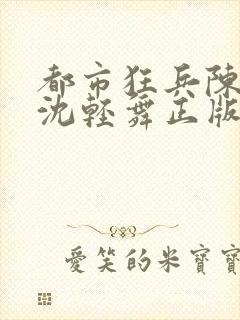 都市狂兵陳
沈輕舞正版
愛笑的米寶寶